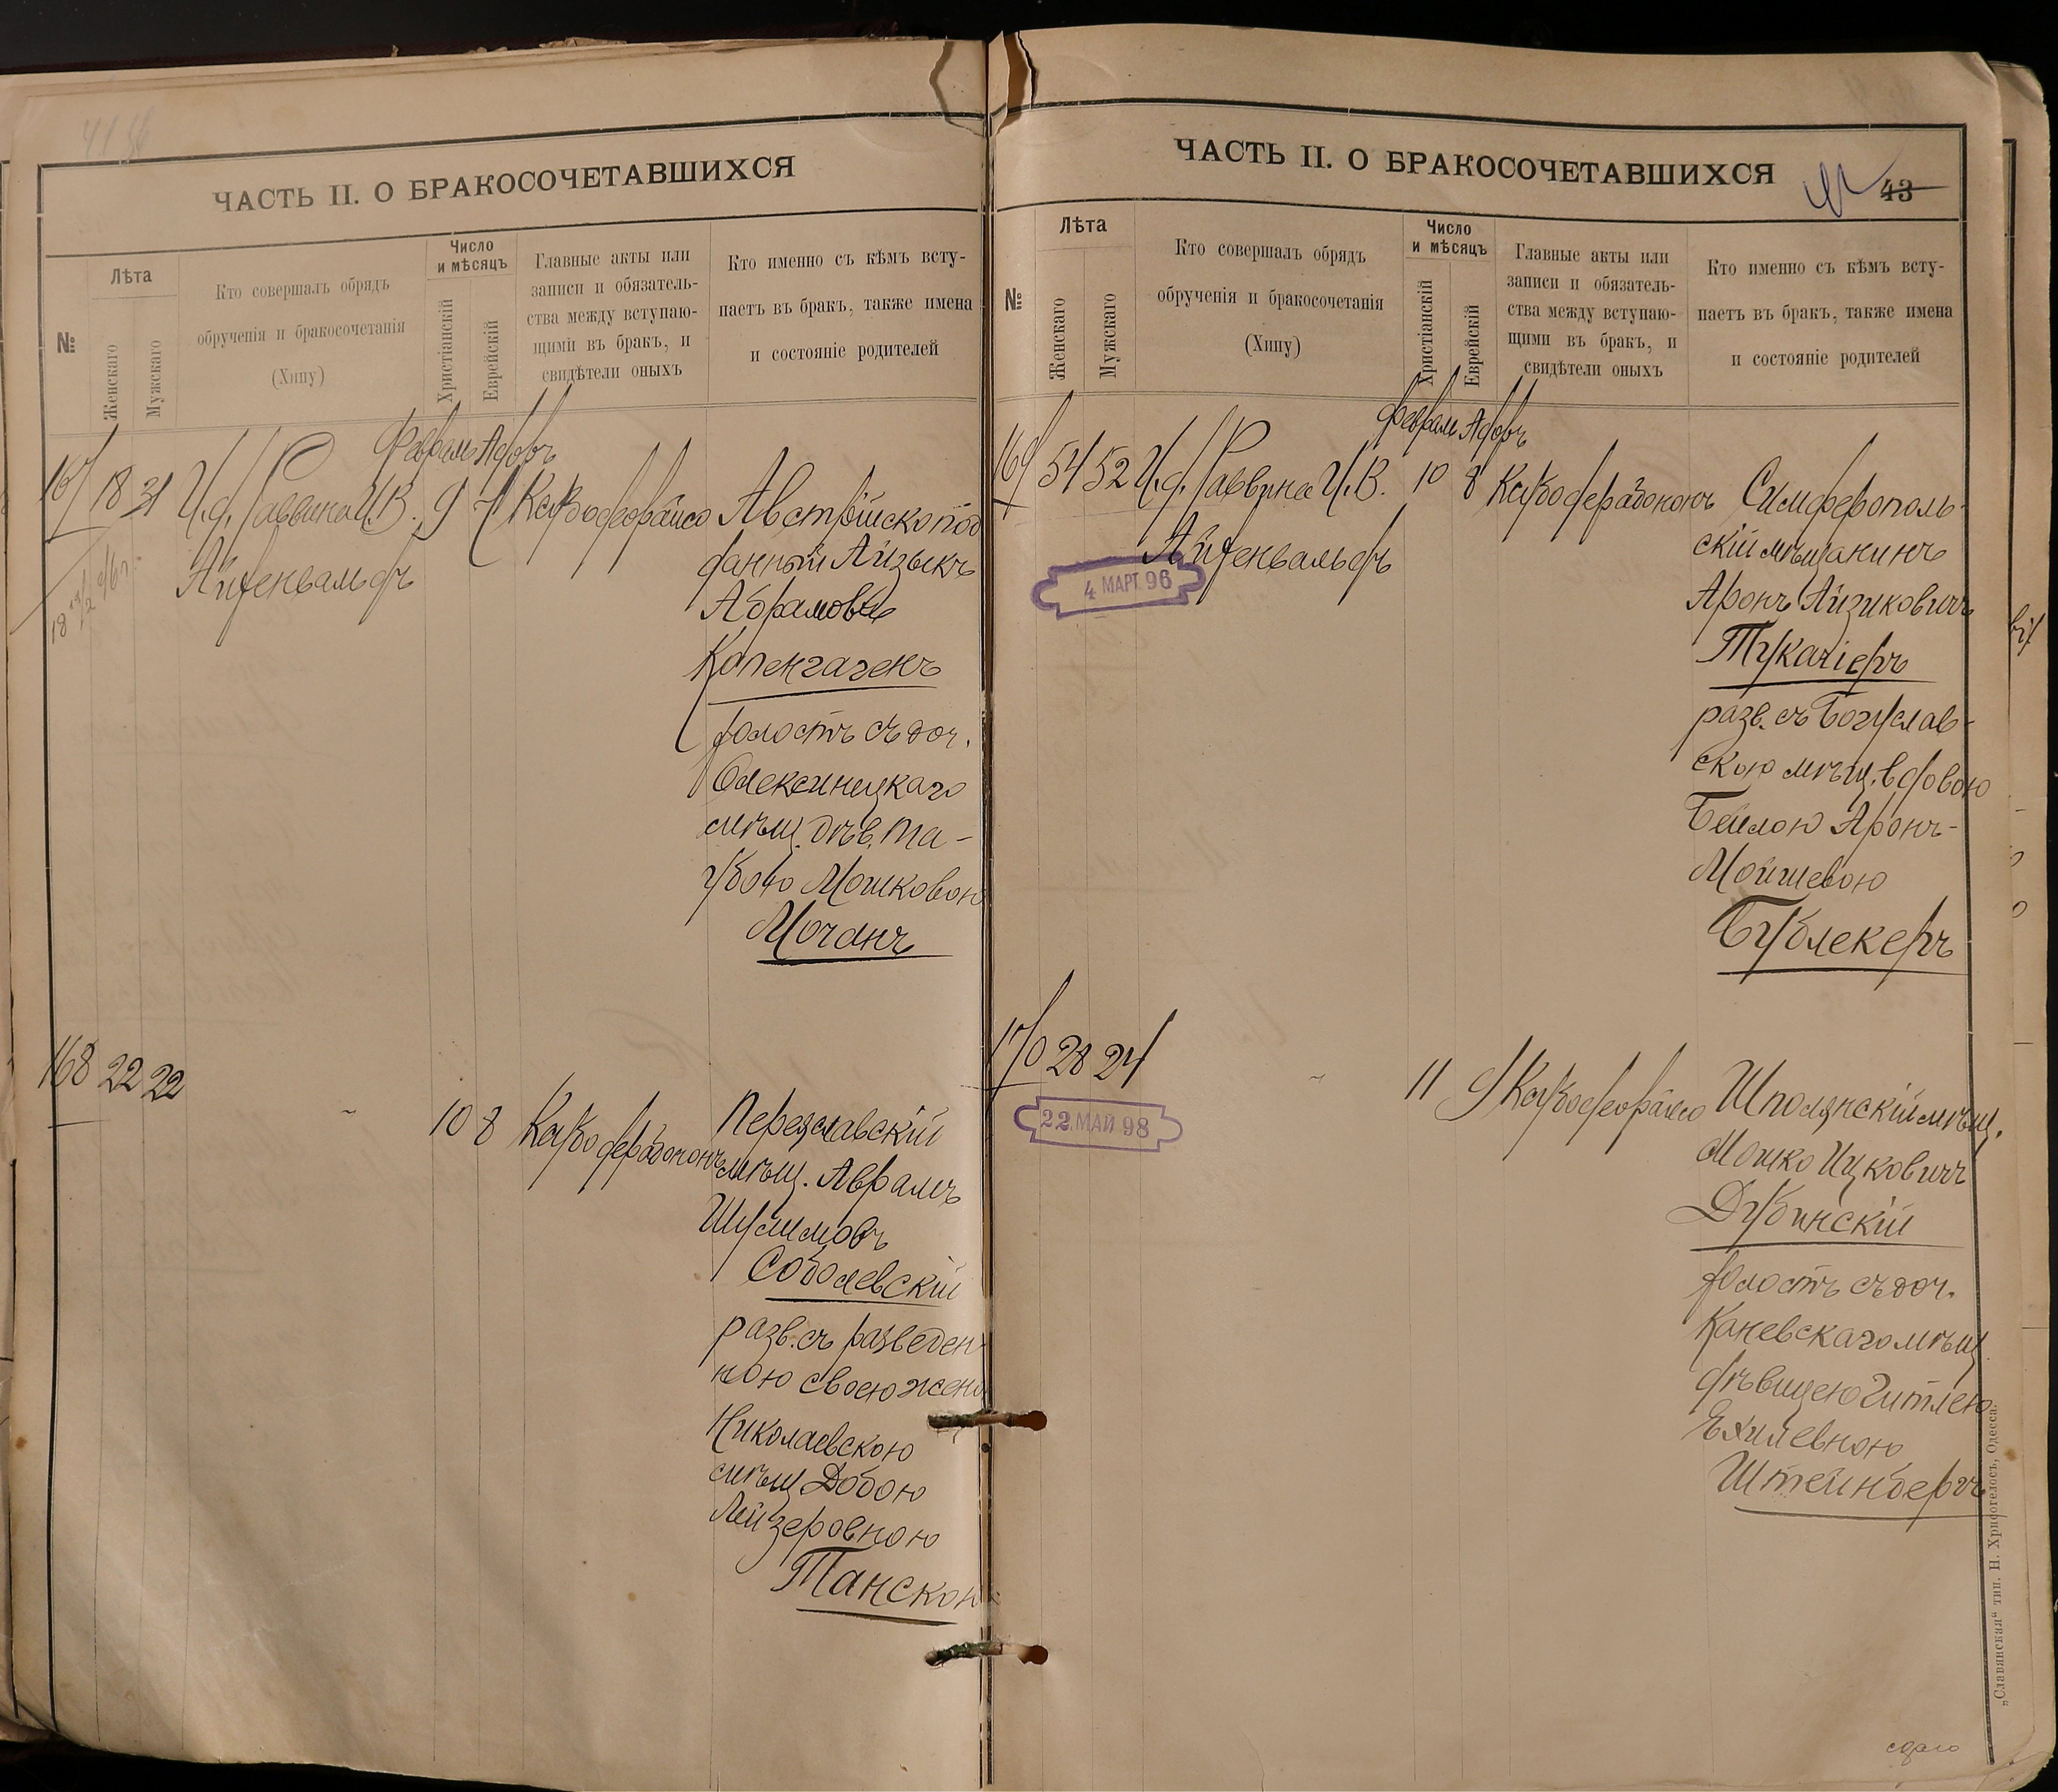 ЧАСТЬ II. О БРАКОСОЧЕТАВШИХСЯ
№
Лѣта
Женскаго
Мужскаго
Кто совершалъ обрядъ
обрученія и бракосочетанія
(Хипу)
Число
и мѣсяцъ
Христіанскій
Еврейскій
Главные акты или
записи и обязатель-
ства между вступаю-
щими въ бракъ, и
свидѣтели оныхъ
Кто именно съ кѣмъ всту-
паетъ въ бракъ, также имена
и состояніе родителей
167 18 31 И.д. Раввина И.В.
Айхенвальдъ
Февраль Адоръ
9 7
Австрійскопод
данный Айзыкъ
Абрамовъ
Копенгагенъ
холостъ съ доч.
Олексинецкаго
мѣщ. дѣв. Та-
убою Мошковою
Мочанъ
168 22 22
10 8
Переяславскій
мѣщ. Аврамъ
Шулимовъ
Соболевскій
разв. съ разведен
ною своею жено
Николаевскою
мѣщ Добою
Лейзеровною
Танскою
ЧАСТЬ II. О БРАКОСОЧЕТАВШИХСЯ
43
№
Лѣта
Женскаго
Мужскаго
Кто совершалъ обрядъ
обрученія и бракосочетанія
(Хипу)
Число
и мѣсяцъ
Христіанскій
Еврейскій
Главные акты или
записи и обязатель-
ства между вступаю-
щими въ бракъ, и
свидѣтели оныхъ
Кто именно съ кѣмъ всту-
паетъ въ бракъ, также имена
и состояніе родителей
169 54 52 И.д. Раввина И.В.
Айхенвальдъ
4 МАРТ. 96
Февраль Адоръ
10 8
Симферополь-
скій мѣщанинъ
Аронъ Айзиковичъ
Тукачіеръ
разв. съ Богуслав-
скою мѣщ. вдовою
Бейлою Аронъ-
Мойшевою
Бублекеръ
170 28 24
22. МАЙ 98
11 9
Шполянскій мѣщ.
Мошко Ицковичъ
Дубинскій
холостъ съ доч.
Каневскаго мѣщ
дѣвицею Гитлею
Ехилевною
Штейнбергъ
„Славянская“ тип. Н. Хрисогелосъ, Одесса.